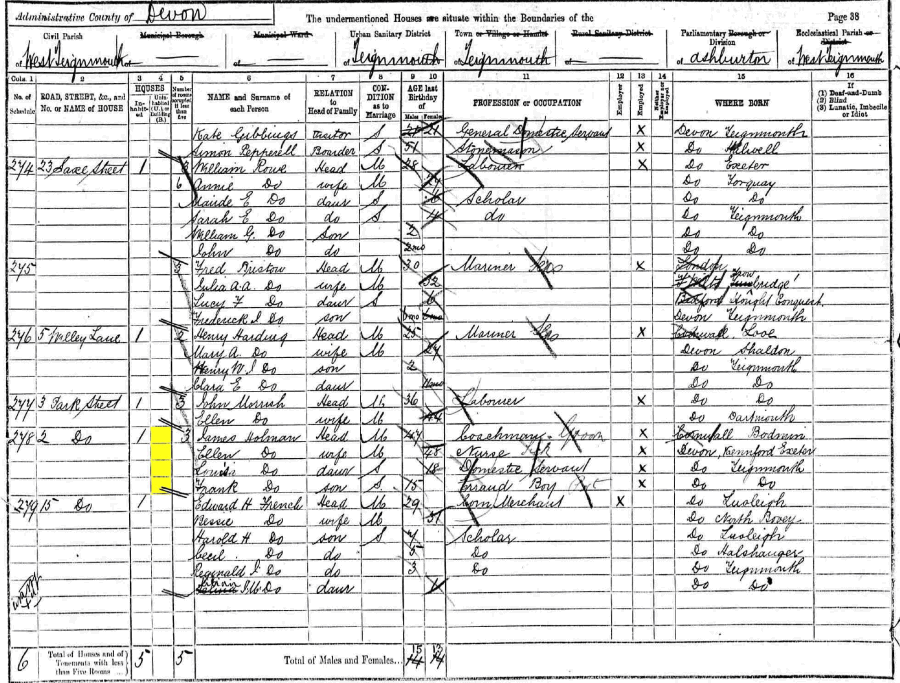 Administrative County of Devon The undermentioned Houses are situate within the Boundaries of the Page 38
Civil Parish Municipal Borough Municipal Ward Urban Sanitary District Town or Village or Hamlet Rural Sanitary District Parliamentary Borough or Division Ecclesiastical Parish or District
of West Teignmouth of of of Teignmouth of Teignmouth of of Ashburton of West Teignmouth
Cols. 1 2 3 4 5 6 7 8 9 10 11 12 13 14 15 16
No. of Schedule ROAD, STREET, &c., and No. or NAME of HOUSE HOUSES Inhabited Uninhabited (U.), or Building (B.) Number of rooms occupied if less than five NAME and Surname of each Person RELATION to Head of Family CONDITION as to Marriage AGE last Birthday of Males Females PROFESSION or OCCUPATION Employer Employed Neither Employer nor Employed WHERE BORN (1) Deaf-and-Dumb (2) Blind (3) Lunatic, Imbecile or Idiot
Kate Gibbings visitor S 21 General Domestic Servant X Devon Teignmouth
Simon Pepperell Boarder S 51 Stonemason X Do
274 23 Street 1 William Rowe Head M 28 Labourer X Do Exeter
6 Annie Do wife M 27 Do Torquay
Maude E Do daur S Scholar Do Do
Sarah E Do do S 4 do Do Teignmouth
William G. Do son 2 Do Do
John Do do 2 mo Do Do
275 3 Fred Bristow Head M 30 Mariner X London
Julia A.A. Do wife M 32 bridge
Lucy F Do daur S 6 Bedford Conquest
Frederick J Do son 6 mo Devon Teignmouth
276 5 Willey Lane 1 2 Henry Harding Head M 25 Mariner X Cornwall Looe
Mary A. Do wife M 24 Devon Shaldon
Henry W J Do son 2 Do Teignmouth
Clara E Do daur mo Do Do
277 3 Park Street 1 3 John Morrish Head M 36 Labourer X Do Do
Ellen Do wife M 44 Do Dartmouth
278 2 Do 1 3 James Holman Head M 47 Coachman Groom X Cornwall Bodmin
Ellen Do wife M 48 Nurse X Devon, Kennford Exeter
Louisa Do daur S 18 Domestic Servant X Do Teignmouth
Frank Do son S 15 Errand Boy X Do Do
279 15 Do 1 Edward H French Head M 29 Corn Merchant X Do Lusleigh
Bessie Do wife M 31 Do North Bovey
Harold H Do son S 7 Scholar Do Lusleigh
Cecil Do do 5 Do Do Halshanger
Reginald J Do do 3 Do Do Teignmouth
Lilian J M Do daur 1 Do Do
6 Total of Houses and of Tenements with less than Five Rooms 5 5 Total of Males and Females... 15 13
14 14